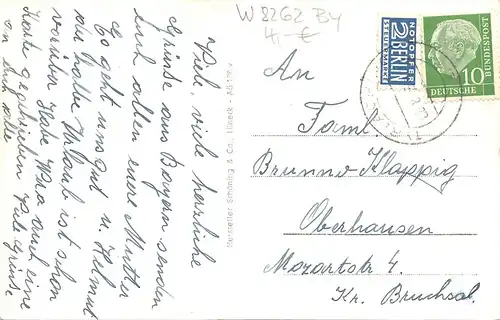 Viele, viele herzliche
Grüsse aus Bayern senden
Euch allen eure Mutter
Es geht uns gut u. Helmut
der halbe Urlaub ist schon
vorüber Habe Wera auch eine
Karte geschrieben Viele Grüsse
an Euch alle
Hersteller Schöning & Co., Lübeck
W 8262 By
4,- €
NOTOPFER
2 BERLIN
STEUERMARKE
DEUTSCHE
BUNDESPOST
10
An
Faml.
Brunno Klappig
Oberhausen
Mozartstr 4.
Kr. Bruchsal.